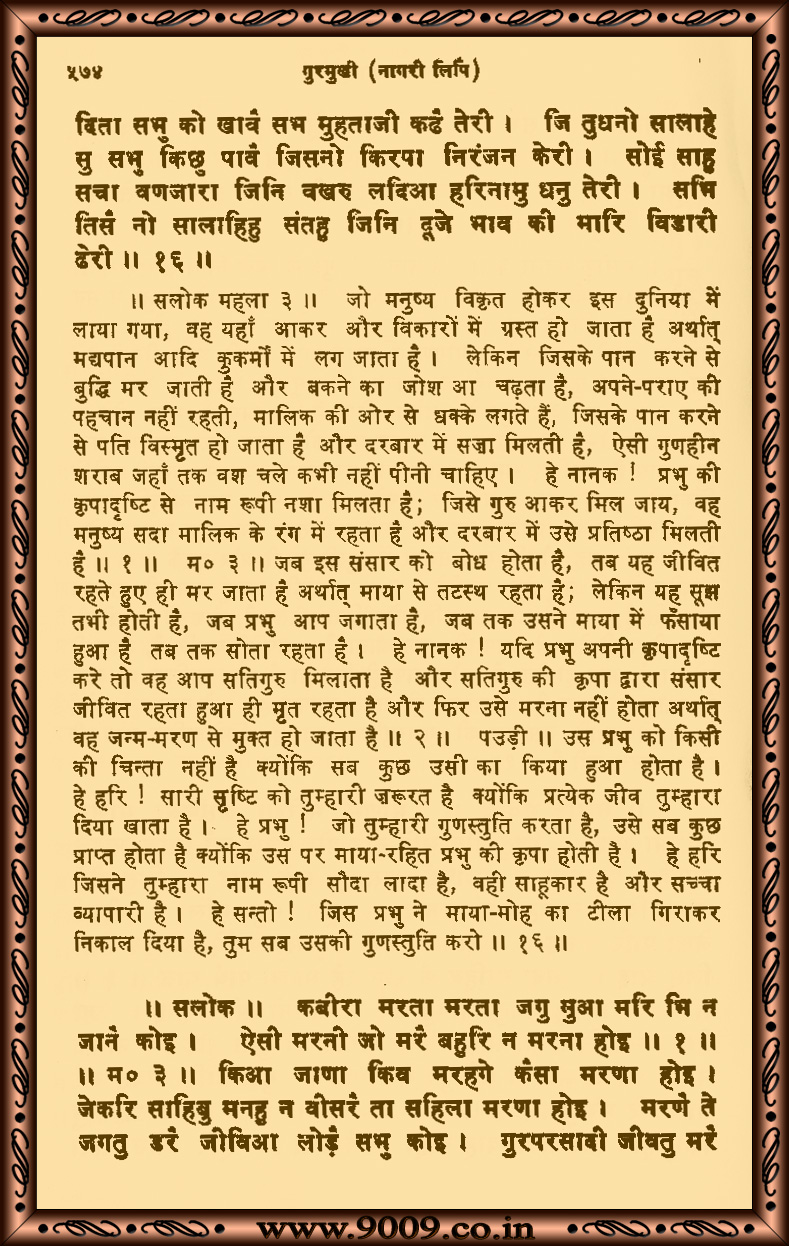 ५७४ गुरमुखी (नागरी लिपि)
दिता सभु को खावै सभ मुहताजी कढै तेरी । जि तुधनो सालाहे
सु सभु किछु पावै जिसनो किरपा निरंजन केरी । सोई साहु
सचा वणजारा जिनि वखरु लदिआ हरिनामु धनु तेरी । सभि
तिसै नो सालाहिहु संतहु जिनि दूजे भाव की मारि विडारी
ढेरी ॥ १६ ॥
॥ सलोक महला ३ ॥ जो मनुष्य विकृत होकर इस दुनिया में
लाया गया, वह यहाँ आकर और विकारों में ग्रस्त हो जाता है अर्थात्
मद्यपान आदि कुकर्मों में लग जाता है । लेकिन जिसके पान करने से
बुद्धि मर जाती है और बकने का जोश आ चढ़ता है, अपने-पराए की
पहचान नहीं रहती, मालिक की ओर से धक्के लगते हैं, जिसके पान करने
से पति विस्मृत हो जाता है और दरबार में सज़ा मिलती है, ऐसी गुणहीन
शराब जहाँ तक वश चले कभी नहीं पीनी चाहिए । हे नानक ! प्रभु की
कृपादृष्टि से नाम रूपी नशा मिलता है; जिसे गुरु आकर मिल जाय, वह
मनुष्य सदा मालिक के रंग में रहता है और दरबार में उसे प्रतिष्ठा मिलती
है ॥ १ ॥ म० ३ ॥ जब इस संसार को बोध होता है, तब यह जीवित
रहते हुए ही मर जाता है अर्थात् माया से तटस्थ रहता है; लेकिन यह सूझ
तभी होती है, जब प्रभु आप जगाता है, जब तक उसने माया में फँसाया
हुआ है तब तक सोता रहता है । हे नानक ! यदि प्रभु अपनी कृपादृष्टि
करे तो वह आप सतिगुरु मिलाता है और सतिगुरु की कृपा द्वारा संसार
जीवित रहता हुआ ही मृत रहता है और फिर उसे मरना नहीं होता अर्थात्
वह जन्म-मरण से मुक्त हो जाता है ॥ २ ॥ पउड़ी ॥ उस प्रभु को किसी
की चिन्ता नहीं है क्योंकि सब कुछ उसी का किया हुआ होता है ।
हे हरि ! सारी सृष्टि को तुम्हारी जरूरत है क्योंकि प्रत्येक जीव तुम्हारा
दिया खाता है । हे प्रभु ! जो तुम्हारी गुणस्तुति करता है, उसे सब कुछ
प्राप्त होता है क्योंकि उस पर माया-रहित प्रभु की कृपा होती है । हे हरि
जिसने तुम्हारा नाम रूपी सौदा लादा है, वही साहूकार है और सच्चा
व्यापारी है । हे सन्तो ! जिस प्रभु ने माया-मोह का टीला गिराकर
निकाल दिया है, तुम सब उसकी गुणस्तुति करो ॥ १६ ॥
॥ सलोक ॥ कबीरा मरता मरता जगु मुआ मरि भि न
जानै कोइ । ऐसी मरनी जो मरै बहुरि न मरना होइ ॥ १ ॥
॥ म० ३ ॥ किआ जाणा किव मरहगे कैसा मरणा होइ ।
जेकरि साहिबु मनहु न वीसरै ता सहिला मरणा होइ । मरणै ते
जगतु डरै जीविआ लोड़ै सभु कोइ । गुरपरसादी जीवतु मरै
www.9009.co.in